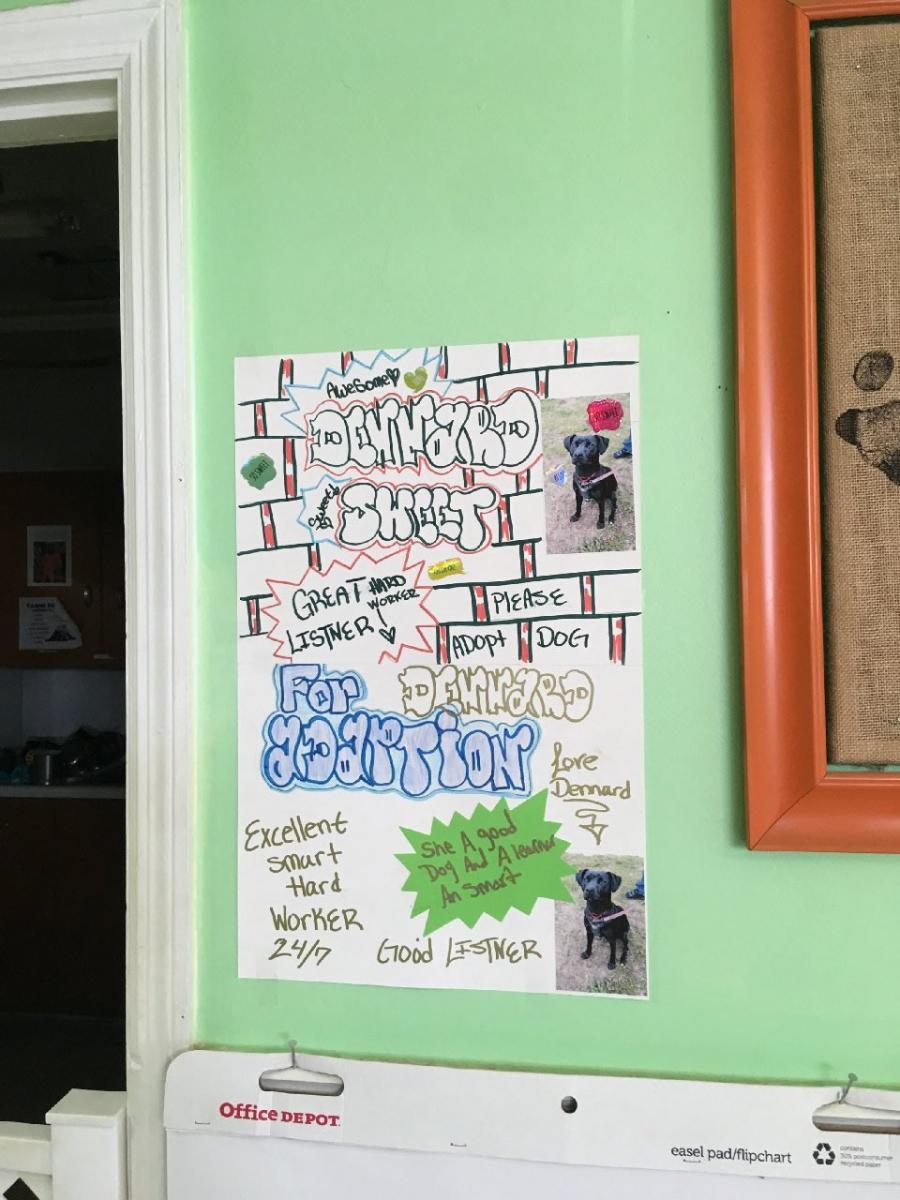 Awesome
DENNARD
Sweet!
SWEET
GREAT HARD
WORKER
LISTNER!
PLEASE
ADOPT DOG
For
DENNARD
ADAPTION
Love
Dennard
Excellent
Smart
Hard
WORKER
24/7
She A good
Dog And A learner
An Smart
Good LISTNER
Office DEPOT
easel pad/flipchart
contains
30% postconsumer
recycled paper